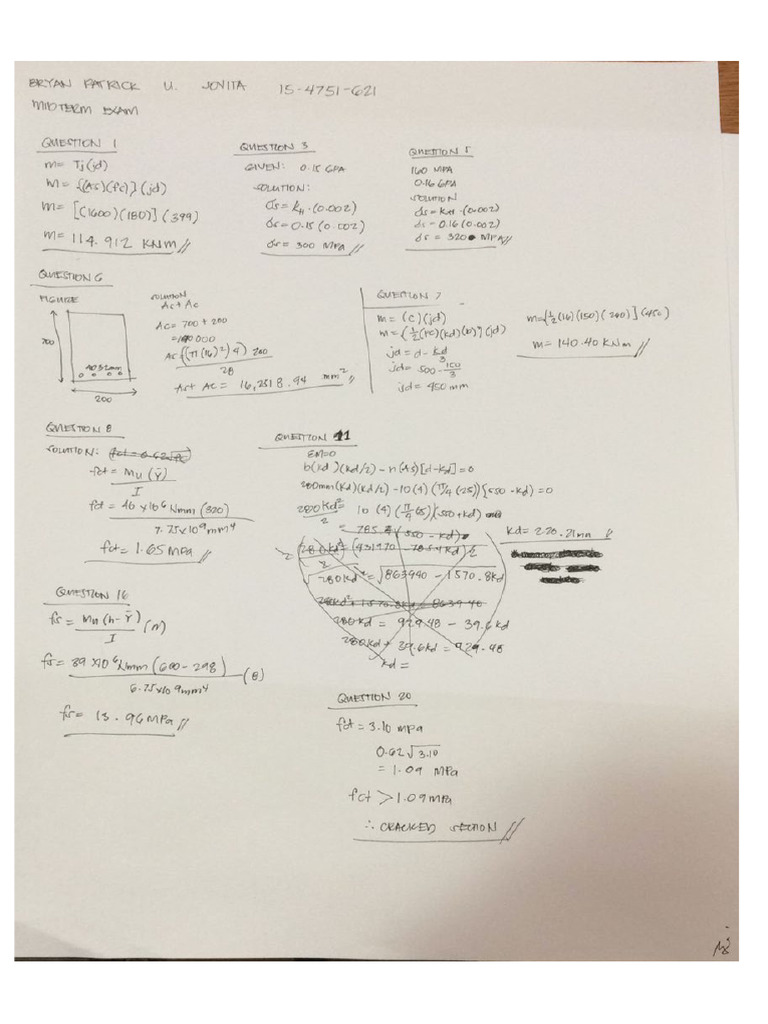 BRYAN PATRICK U. JOVITA 15-4751-621
MIDTERM EXAM
QUESTION 1
m= Tj(jd)
m= {(As)(fc)}(jd)
m= [(1600)(180)](399)
m= 114.912 KNm
QUESTION 3
GIVEN: 0.15 GPA
SOLUTION:
ds= KH·(0.002)
ds= 0.15(0.002)
ds= 300 MPA
QUESTION 5
160 MPA
0.16 GPA
SOLUTION
ds= KH·(0.002)
ds= 0.16(0.002)
ds= 320 MPA
QUESTION 6
FIGURE
700
4Ø32mm
200
SOLUTION
As+Ac
Ac= 700+200
=140000
As((π(16)²)4) 200
28
As+Ac= 16,2318.94 mm²
QUESTION 7
m= (c)(jd)
m= {½(fc)(kd)(b)}(jd)
jd= d-kd
3
jd= 500-150
3
jd= 450 mm
m={½(16)(150)(260)](450)
m= 140.40 KNm
QUESTION 8
SOLUTION:
fct= Mu(Ȳ)
I
fct= 40×10⁶Nmm(320)
7.75×10⁹mm⁴
fct= 1.65MPa
QUESTION 11
EM=0
b(kd)(kd/2)-n(As)[d-kd]=0
280mm(kd)(kd/2)-10(4)(π/4(25))[550-kd)=0
280kd²= 10(4)(π/4 65)(550+kd)
2
= 785.4(550-kd)
280kd²=(431970-785.4kd)2
2
√280kd²=√863940-1570.8kd
280kd²+1570.8kd=8639.40
280kd= 929.48-39.6kd
280kd+39.6kd=929.48
kd=
kd= 220.21mm
QUESTION 16
fs= Mu(h-Ȳ)(n)
I
fs= 39×10⁶Nmm(600-298)(8)
6.75×10⁹mm⁴
fs= 13.96MPa
QUESTION 20
fct= 3.10 mpa
0.62√3.10
= 1.09 MPa
fct > 1.09mpa
∴ CRACKED SECTION